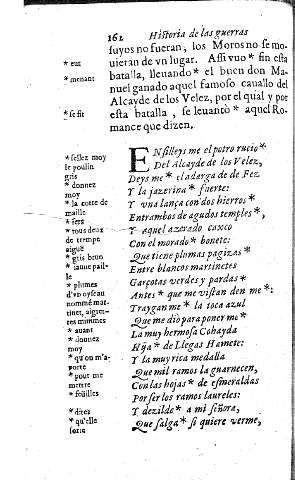 162 Historia de las guerras
suyos no fueran, los Moros no se mo-
uieran de vn lugar. Assi vuo * fin esta
batalla, lleuando * el buen don Ma-
nuel ganado aquel famoso cauallo del
Alcayde de los Velez, por el qual y por
esta batalla, se leuantò * aquel Ro-
mance que dizen.
* eut
* menant
* se fit
ENsilleys me el potro rucio *
Del Alcayde de los Velez,
Deys me * el adarga de de Fez
Y la jazerina * fuerte:
Y vna lança con dos hierros *
Entrambos de agudos temples *,
Y aquel azerado caxco
Con el morado * bonete:
Que tiene plumas pagizas *
Entre blancos martinetes
Garçotas verdes y pardas *
Antes * que me vistan den me *:
Traygan me * la toca azul
Que me dio para poner me *
La muy hermosa Cohayda
Hija * de Llegas Hamete:
Y la muy rica medalla
Que mil ramos la guarnecen,
Con las hojas * de esmeraldas
Por ser los ramos laureles:
Y dezilde * a mi señora,
Que salga * si quiere verme,
* sellez moy
le poulin
gris
* donnez
moy
* la cotte de
maille
* fers
* tous deux
de trempe
aiguë
* gris brun
* iaune pail-
le
* plumes
d'vn oyseau
nommé mar-
tinet, aigret-
tes minimes
* auant
* donnez
moy
* qu'on m'a-
porte
* pour me
mettre
* fueilles
* dites
* qu'elle
sorte